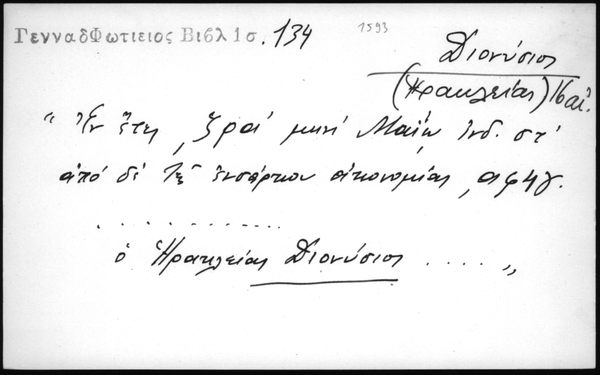 ΓενναδΦωτιειος Βιβλ 1σ. 134
1593
Διονύσιος
(Ἡρακλείας) 16 αἰ.
“ Ἐν ἔτει, ζραʹ μηνί Μαΐῳ Ἰνδ. στʹ
ἀπό δέ τῆς ἐνσάρκου οἰκονομίας, αφ4γ.
. . . . . . . . . . . . . .
ὁ Ἡρακλείας Διονύσιος . . . . „